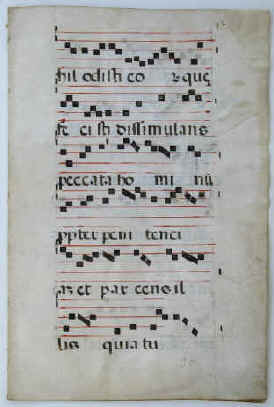 hil odisti eo ꝝ quę
fe cisti dissimulans
peccata ho mi nū
ꝓpter peni tenci
aꝫ et par cens il
lis quia tu